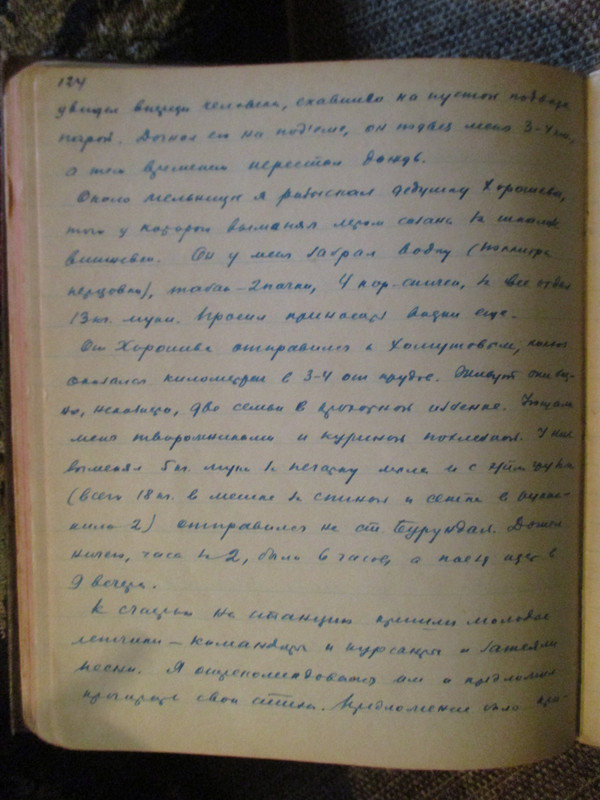 124
увидел впереди человека, ехавшего на пустой подводе
порой. Догнал его на подъеме, он подвез меня 3-4 км,
а тем временем перестал дождь.
Около мельницы я разыскал дедушку Хорошева,
того у которого выменял летом сазана за
Он у меня забрал водку (
перцовки), табак - 2 пачки, 4 кор. спичек, за все отвел
13 кг. муки. Просил приносить водки еще.
От Хорошева отправился к Хомутовым,
оказался километрах в 3-4 от прудов. Живут они
но, две семьи в крохотной избенке. Угощали
меня творожниками и куриной похлебкой. У них
выменял 5 кг. муки за пачку и с этим грузом
(всего 18 кг. в мешке за спиной и сетка в руках
кило 2) отправился на ст. Бурундай. Дошел
ничего, часа за 2, было 6 часов, а поезд идет в
9 вечера.
К счастью на станцию пришли молодые
летчики - командиры и курсанты и затеяли
песни. Я отрекомендовался им и предложил
прочитать свои стихи. Предложение было при-